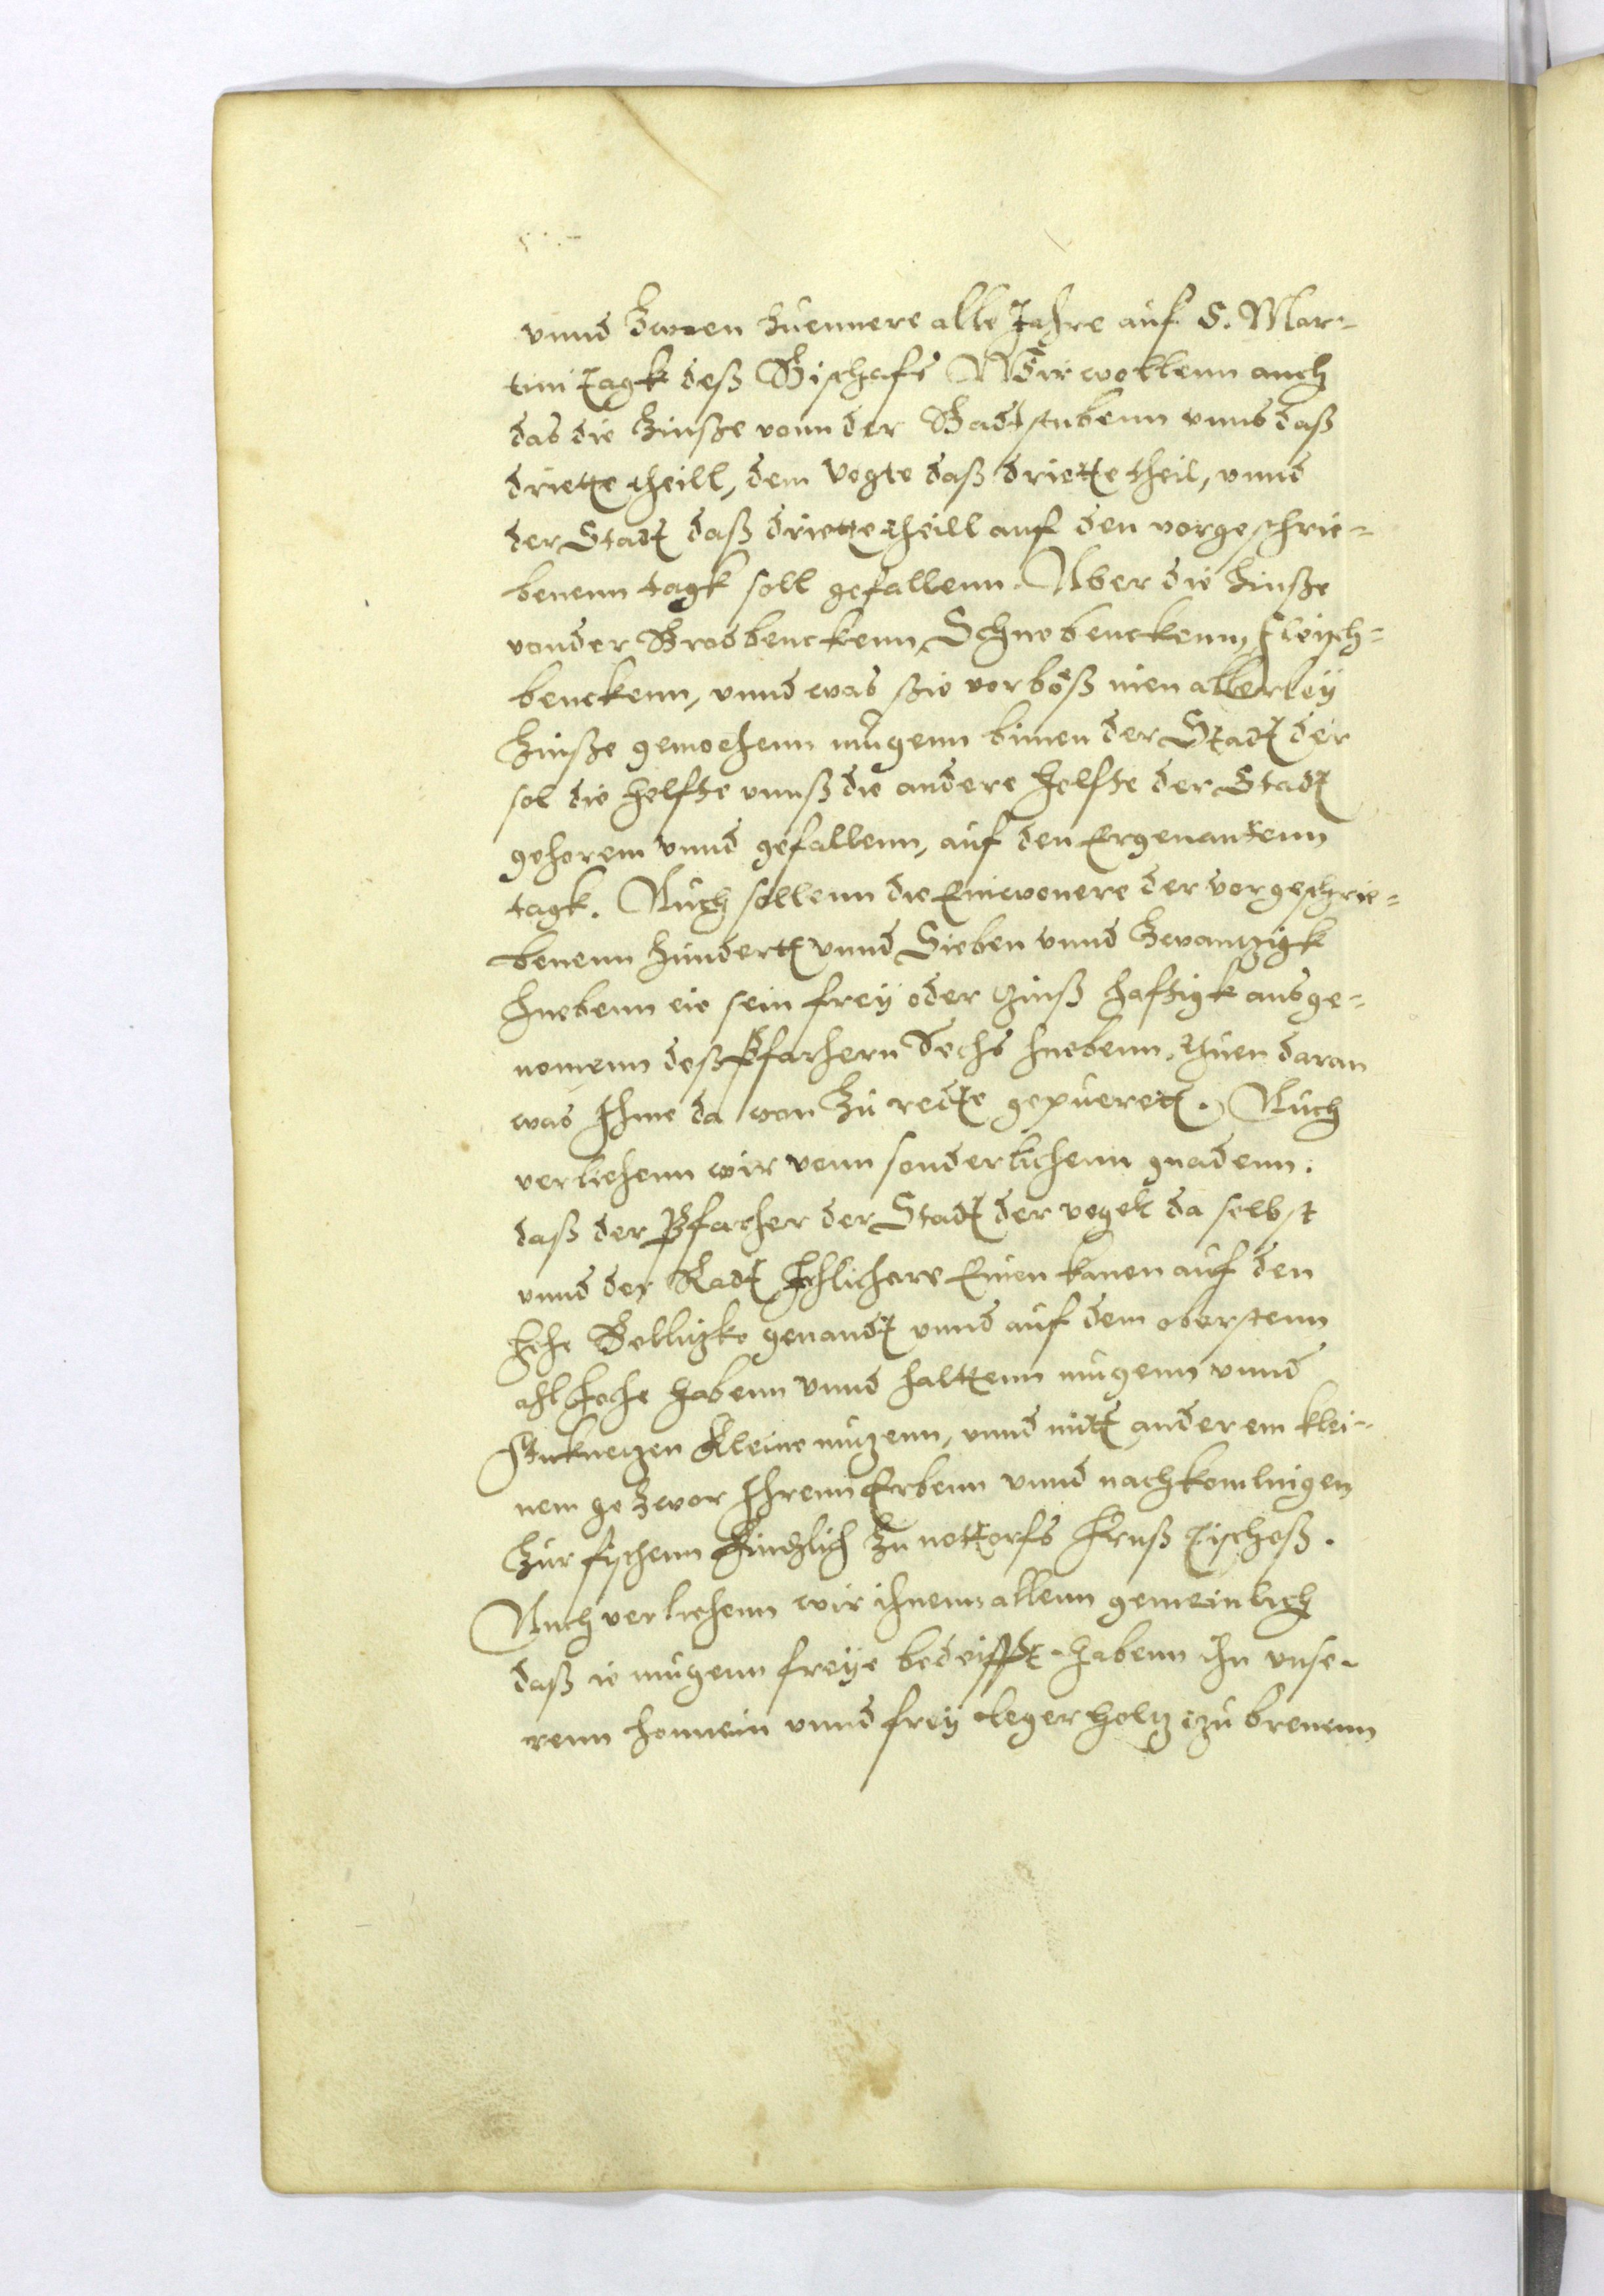 vnnd Zwoen huennere alle Jahre auf S. Mar=
tini Tagk deß Bischofs Wir wollenn auch
das die Zinße vonn der Badstubenn vnns daß
driette theill, dem Vogte daß driette theil, vnnd
der Stadt daß driette theill auf den vorgeschrie=
benenn tagk soll gefallenn. Aber die Zinße
von der Brodbenckenn Schuobenckenn, fleisch=
benckenn, vnnd was ßie vorböß men allerley
Zinße gemochenn mugenn binnen der Stadt der
sol die helfte vnnß die andere helfte der Stadt
gehorenn vnnd gefallenn, auf den Ergenantenn
tagk. Auch sollenn die Einwonere der vorgeschrie=
benenn hundertt vnnd Sieben vnnd Zwantzigk
huebenn eie sein frey oder Zinß haftigk ausge=
nomenn deß Pfarhern Sechs huebenn, thuen daran
was Ihme da von Zu rechte gepuerett. Auch
verliehenn wir vonn sonderlichenn gnadenn.
daß der Pfarher der Stadt der vogtt da selbst
vnnd der Radt Ihlichere Einen kanen auf den
Sehe Bellutzke genandt vnnd auf dem oberstenn
habenn vnnd halttenn mugenn vnnd
Stucknetzen Kleine mutzenn, vnnd mitt anderem klei=
nem gezwor Ihrenn Erbenn vnnd nachkomlingen
Zur fischenn zu nottorfs Ihrus Tischeß.
Auch verliehenn wir ihnenn allenn gemeinlich
daß ie mugenn freye habenn Inn vnse=
renn vnnd frey Legerholtz zu brenenn